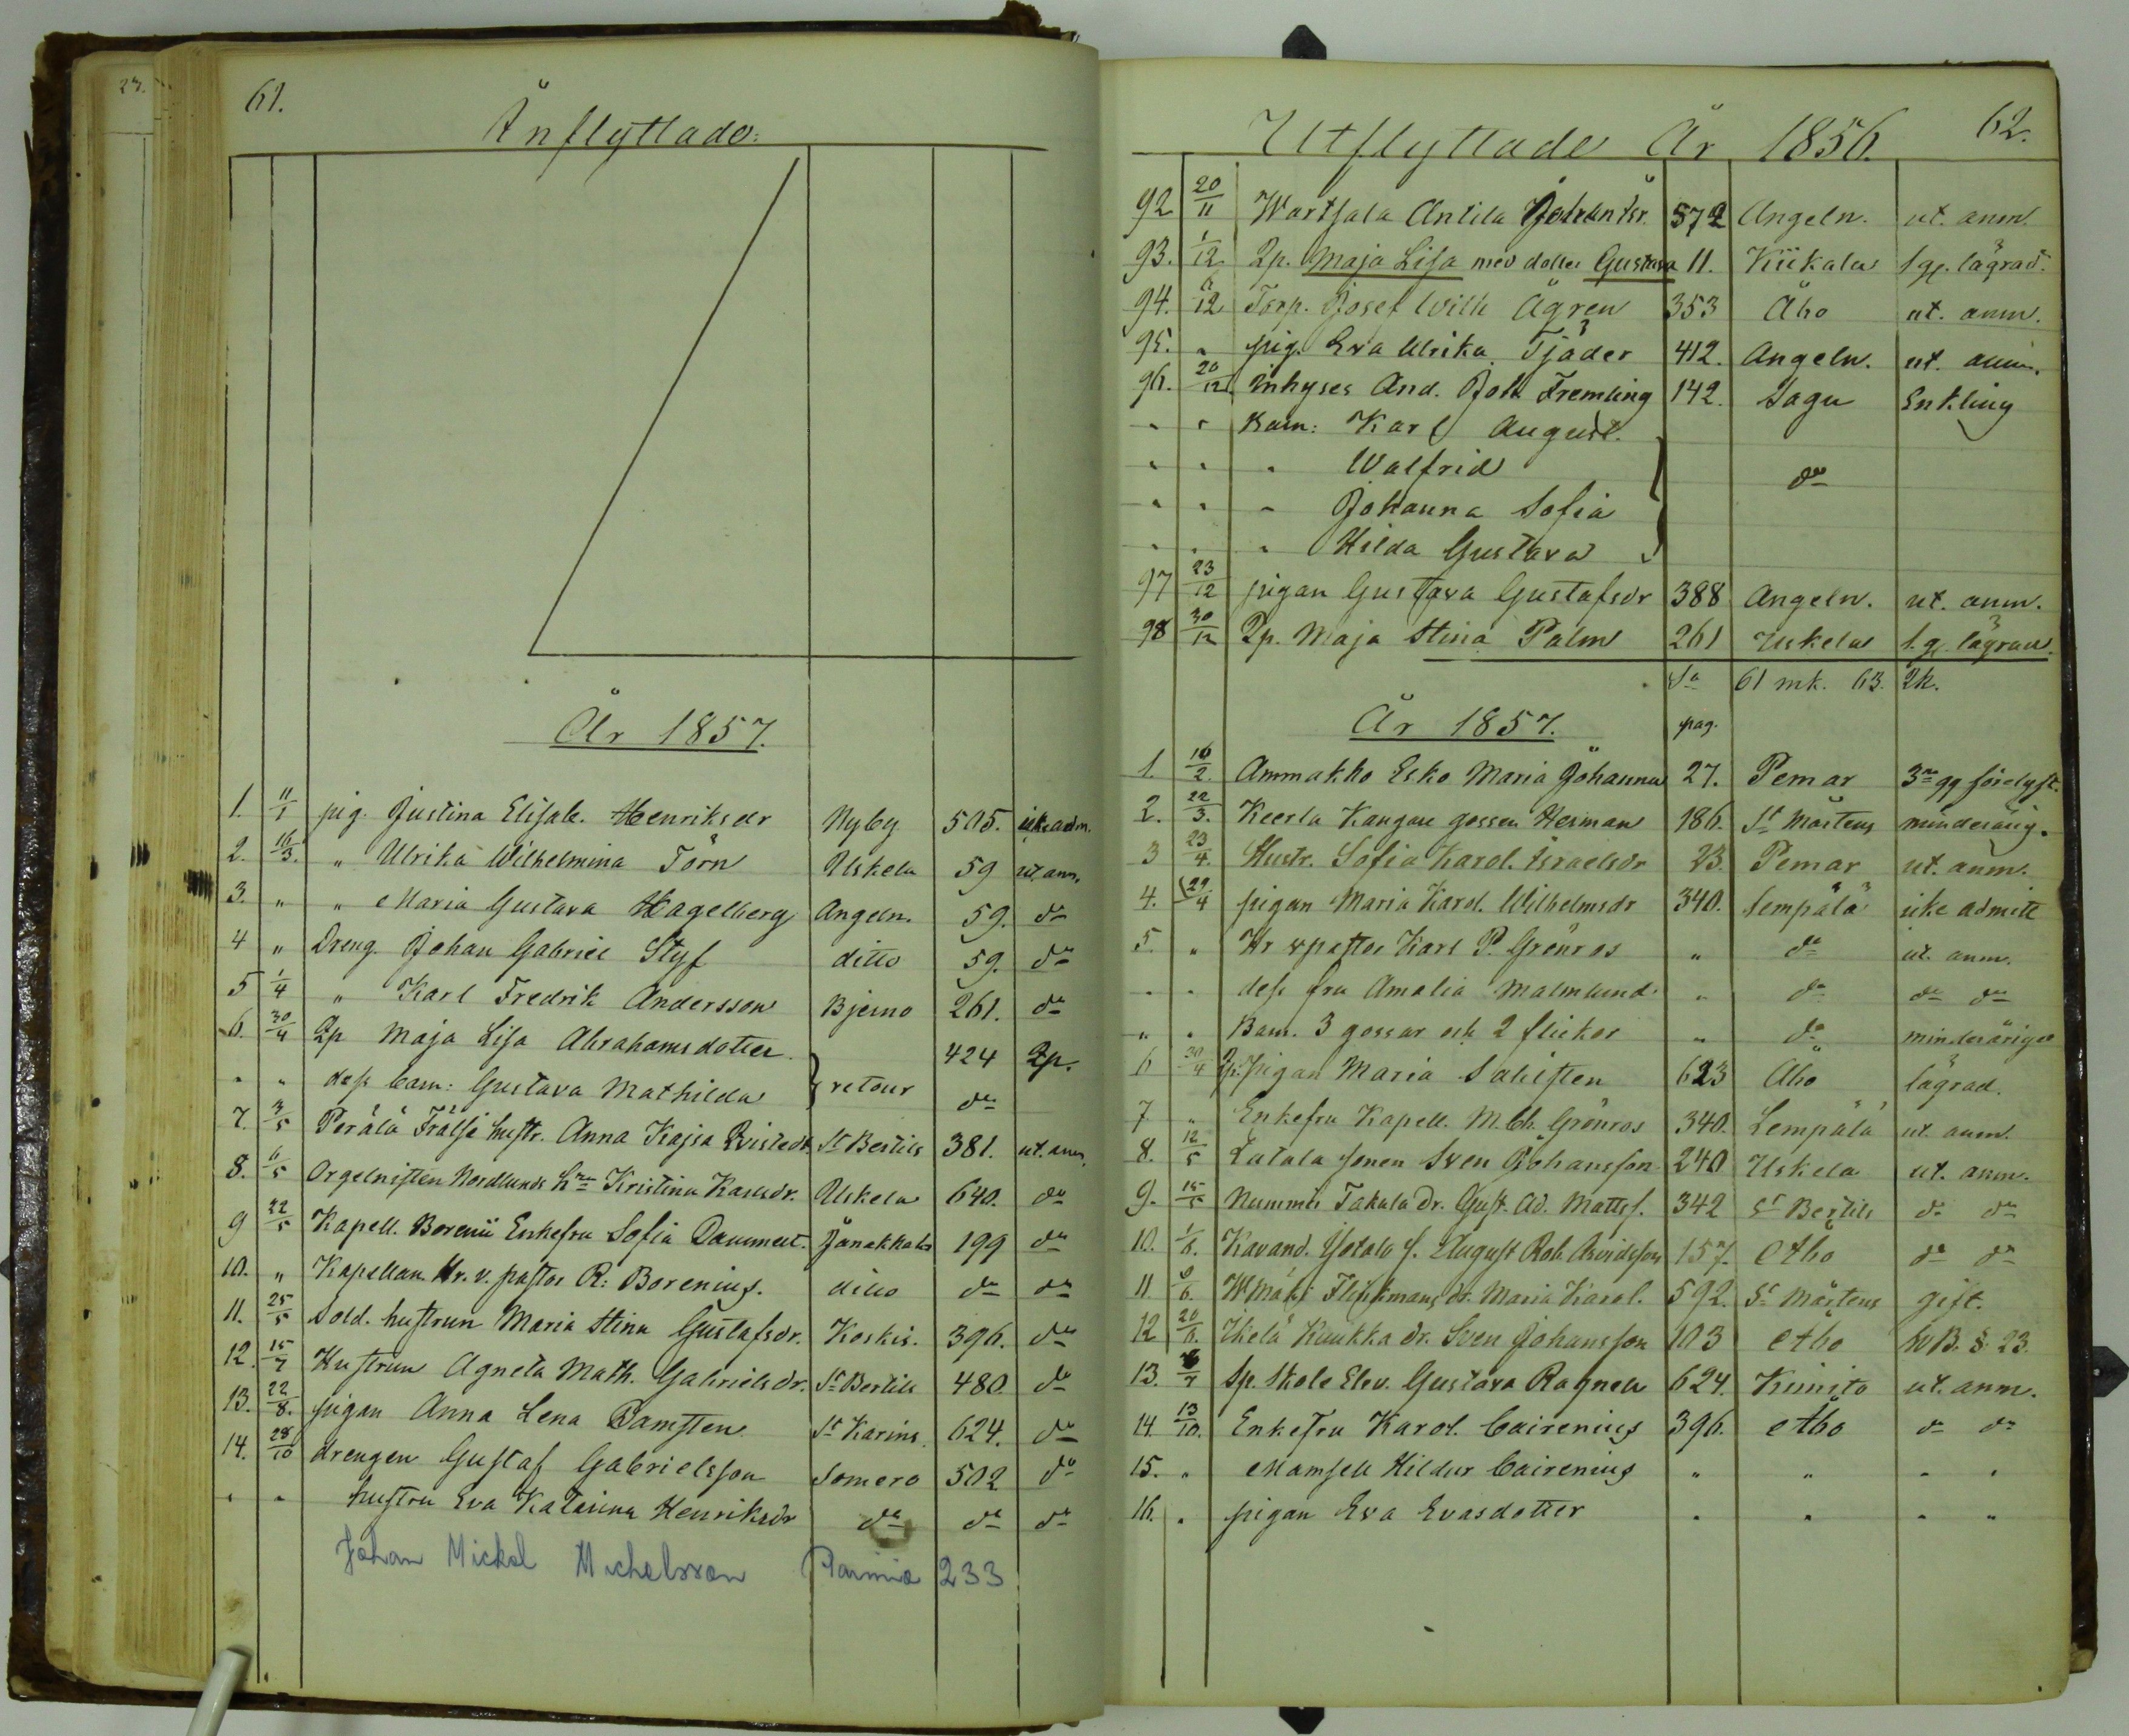 61.
Inflyttade:
År 1857.
1. 11/1 pig. Justina Elisab. Henriksdr Nyby 505. icke adm.
2. 16/3. " Ulrika Wilhelmina Törn Uskela 59 ut. anm.
3. " " Maria Gustava Hagelberg Angeln. 59. do
4 " Dreng. Johan Gabriel Styf ditto 59. do
5 1/4 " Karl Fredrik Andersson Bjerno 261. do
6. 30/4 Qp Maja Lisa Abrahamsdotter 424 Qp.
" " dess barn: Gustava Mathilda } retour do
7. 3/5 Perälä Frälse hustr. Anna Kajsa Qvistedt St Bertils 381. ut. anm.
8. 6/5 Orgelnisten Nordlunds Kristina Karlsdr. Uskela 640. do
9 22/5 Kapell. Borenii Enkefru Sofia Dammert. Janakkala 199 do
10. " Kapellan Hr. v. pastor R: Borenius. ditto do do
11. 25/5 Sold. hustrun Maria Stina Gustafsdr. Koskis. 396. do
12. 15/7 Hustrun Agneta Math. Gabrielsdr. St Bertils 480. do
13. 22/8. pigan Anna Lena Damsten St Karins 624. do
14. 28/10 drengen Gustaf Gabrielsson Somero 502 do
" " hustru Eva Katarina Henriksdr do do do
Johan Mickel Michelsson Paimio 233
Utflyttade År 1856. 62.
92 20/11 Wartsala Antila Johan 572 Angeln. ut. anm.
93. 1/12 Qp. Maja Lisa med dotter Gustava 11. Kiikala lägrad.
94. 12 Torp. Josef Wilh Ågren 353 Åbo ut. anm.
95. " pig. Eva Ulrika Tjäder 412. Angeln. ut. anm.
96. 20/12. Inhyses And. Joh. Fremling 142. Sagu Enkling
" " Barn: Karl August.
" " " Walfrid do
" " " Johanna Sofia
" " " Hilda Gustava
97 23/12 pigan Gustava Gustafsdr 388 Angeln. ut. anm.
98 30/12 Qp. Maja Stina Palm 261 Uskela 1. g. lägrad.
Sa 61 mk. 63. Qk.
År 1857. pag.
1. 16/2. Ammakko Esko Maria Johanna 27. Pemar 3ne gg förelyst.
2. 22/3. Keerla Kangas gossen Herman 186. St Mårtens minderårig.
3 23/4. Hustr. Sofia Karol. Israelsdr 23. Pemar ut. anm.
4. 29/4 pigan Maria Karol. Wilhelmsdr 340. Lempälä icke admitt
5. " Hr v pastor Karl P. Grönros " do ut. anm.
" " dess fru Amalia Malmlund " do do do
" " Barn. 3 gossar och 2 flickor " do minderåriga
6 30/4 Qp. pigan Maria Sahlsten 623 Åbo lägrad.
7 " Enkefru Kapell. M. Ch. Grönros 340. Lempälä ut. anm.
8. 12/5 Latala sonen Sven Johansson 240 Uskela ut. anm.
9. 15/5 Nummis Takala Dr. Gust. Ad. Matts. 342 St Bertils do do
10. 1/6. Kavand. Yötalo s. August Rob. Arvidsson 157. Åbo do do
11. 9/6. Wmäki Flinkmans dr. Maria Karol. 592. St Mårtens gift.
12 20/6. Ikelä Kaukka dr. Sven Johansson 103 Åbo § 23.
13. 7 Sp. Skole Elev. Gustava Ragnell 624. Kimito ut. anm.
14. 13/10. Enkefru Karol. Cairenius 396. Åbo do do
15. " Mamsell Hildur Cairenius " " " "
16. " pigan Eva Evasdotter " " " "